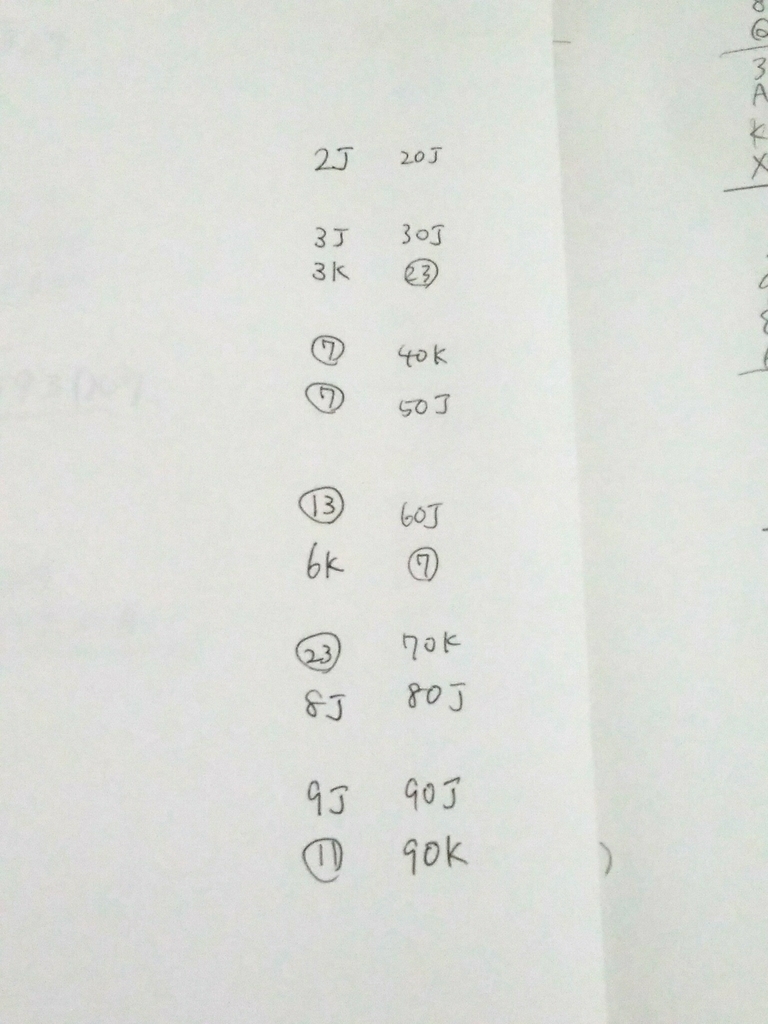 2J 20J
3J 30J
3K ㉓
⑦ 40K
⑦ 50J
⑬ 60J
6K ⑦
㉓ 70K
8J 80J
9J 90J
⑪ 90K
)
3
A
K
X